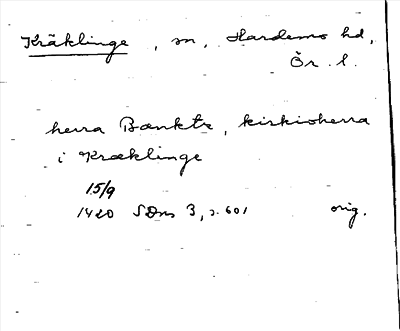 Kräklinge, sn, Hardemo hd,
Ör. l.
herra Bænktz, kirkioherra
i Kræklinge
15/9
1420 SDns 3, s. 601 orig.